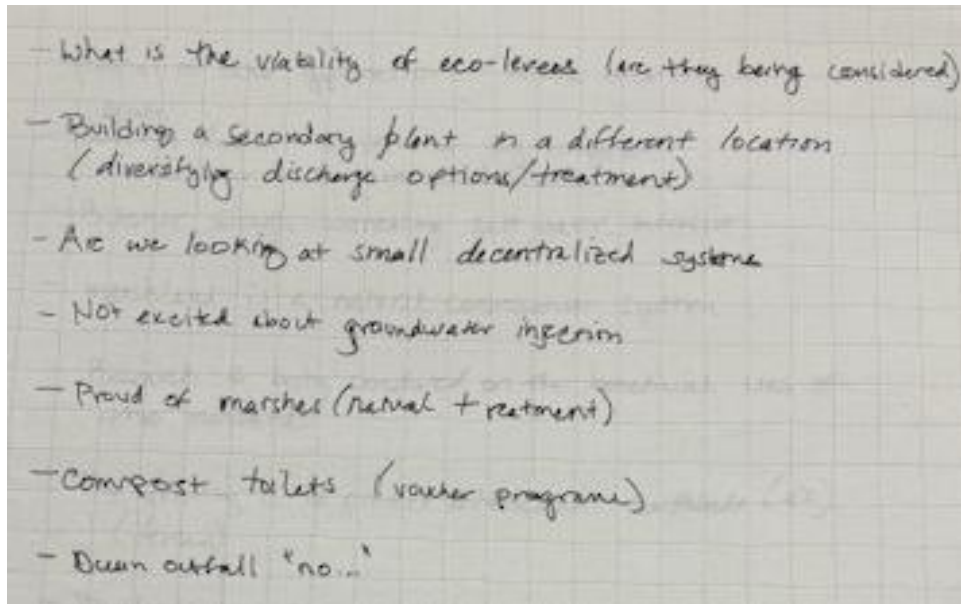 - What is the viability of eco-levees (are they being considered)
- Building a secondary plant in a different location
(diversifying discharge options/treatment)
- Are we looking at small decentralized systems
- Not excited about groundwater injection
- Proud of marshes (natural treatment)
- Compost toilets (voucher programs)
- outfall "no..."